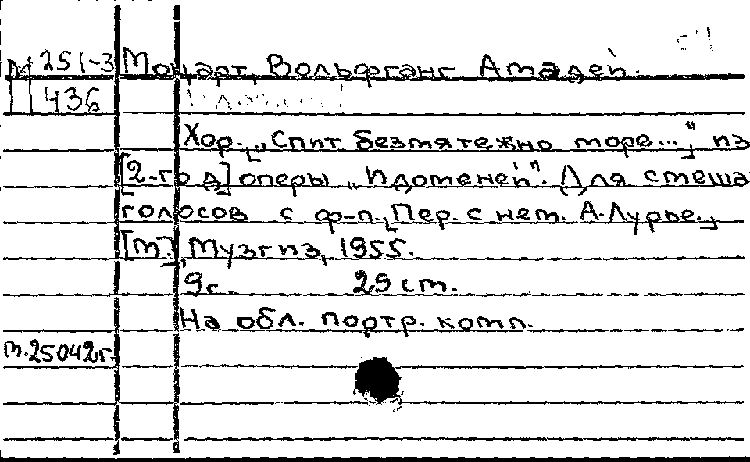 М 251-3 Моцарт, Вольфганг Амадей.
436
Хор „Спит безмятежно море..." из
[2-го д.] оперы „Идоменей". Для смеша
голосов с ф-п. Пер. с нем. А. Лурье.
[М.], Музгиз, 1955.
9с. 29 см.
На обл. портр. комп.
м.25042г.